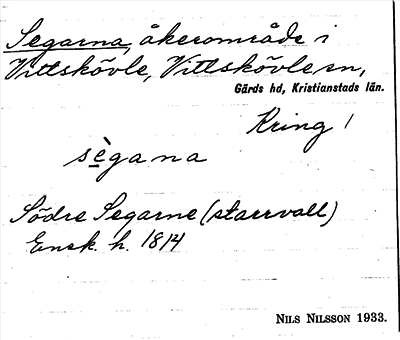 Segarna, åkerområde i
Vittskövle, Vittskövle sn,
Gärds hd, Kristianstads län.
Kring 1
sègana
Södre Segarne (starrvall)
Ensk. h. 1814
NILS NILSSON 1933.